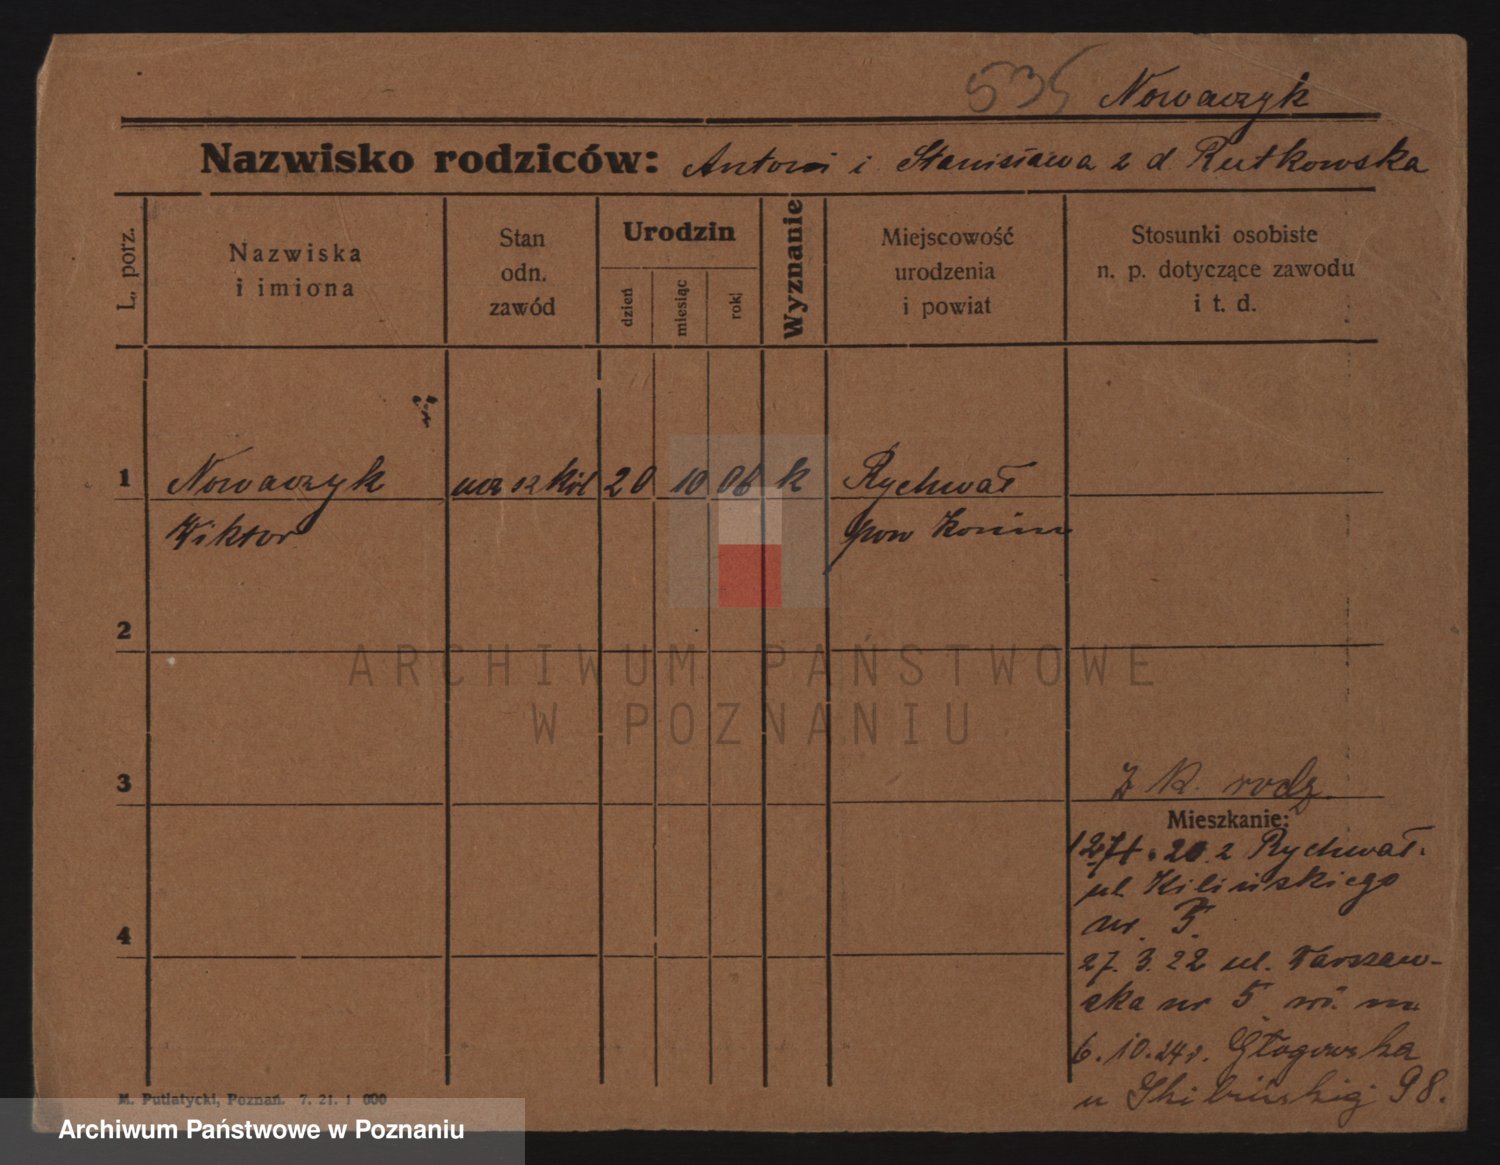 535 Nowaczyk
Nazwisko rodziców: Antoni i Stanisława z d Rutkowska
L. porz.
Nazwiska
i imiona
Stan
odn.
zawód
Urodzin
dzień
miesiąc
rok
Wyznanie
Miejscowość
urodzenia
i powiat
Stosunki osobiste
n. p. dotyczące zawodu
i t. d.
1 Nowaczyk ucz szkół 20 10 06 k Rychwał
Wiktor pow Konin
2
ARCHIWUM PAŃSTWOWE
W POZNANIU
3
Z k. rodz.
Mieszkanie:
Rychwał.
ul Kilińskiego
nr. 5.
4
27. 3. 22 ul. Warszaw-
ska nr 5
6. 10. 24 r. Głogowska
u 98.
M. Putiatycki, Poznań. 7. 21. 1 000
Archiwum Państwowe w Poznaniu